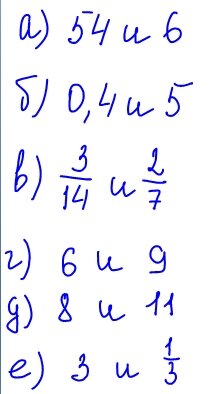 а) 54 и 6
б) 0,4 и 5
в) 3/14 и 2/7
г) 6 и 9
д) 8 и 11
е) 3 и 1/3